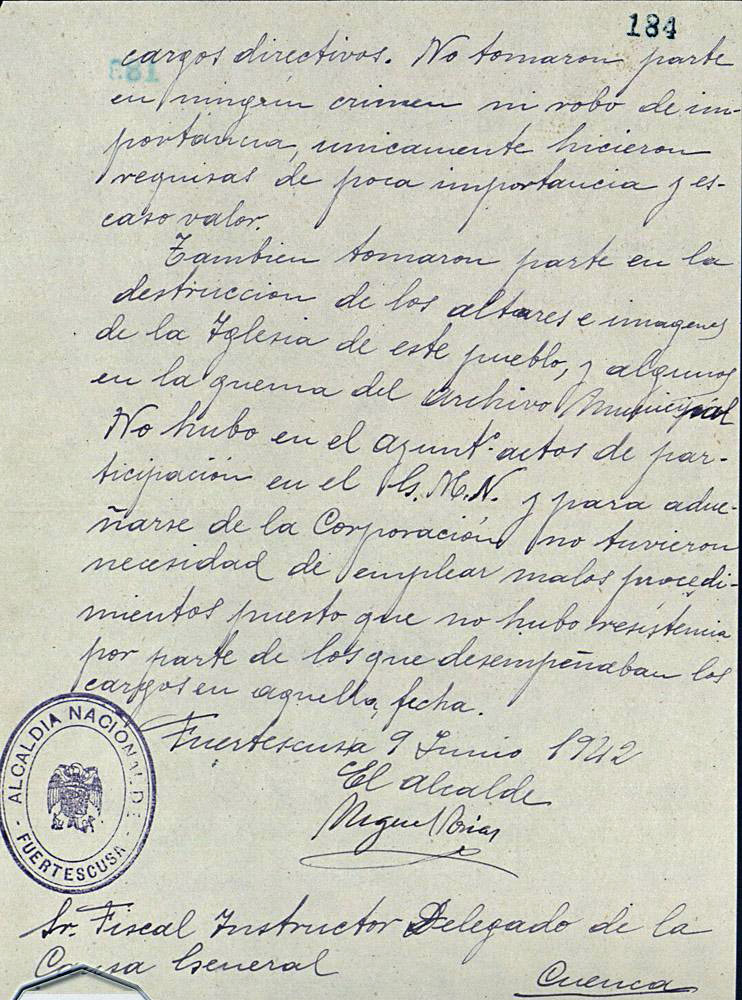 184
cargos directivos. No tomaron parte
en ningún crimen ni robo de im-
portancia, unicamente hicieron
requisas de poca importancia y es-
caso valor.
Tambien tomaron parte en la
destruccion de los altares e imagenes
de la Iglesia de este pueblo, y algunos
en la quema del Archivo Municipal
No hubo en el ayuntº actos de par-
ticipación en el G.M.N. y para adue-
ñarse de la Corporación no tuvieron
necesidad de emplear malos procedi-
mientos puesto que no hubo resistencia
por parte de los que desempeñaban los
cargos en aquella fecha.
Fuertescusa 9 Junio 1942
El alcalde
Miguel
ALCALDIA NACIONAL DE
FUERTESCUSA
Sr. Fiscal Instructor Delegado de la
Causa General
Cuenca